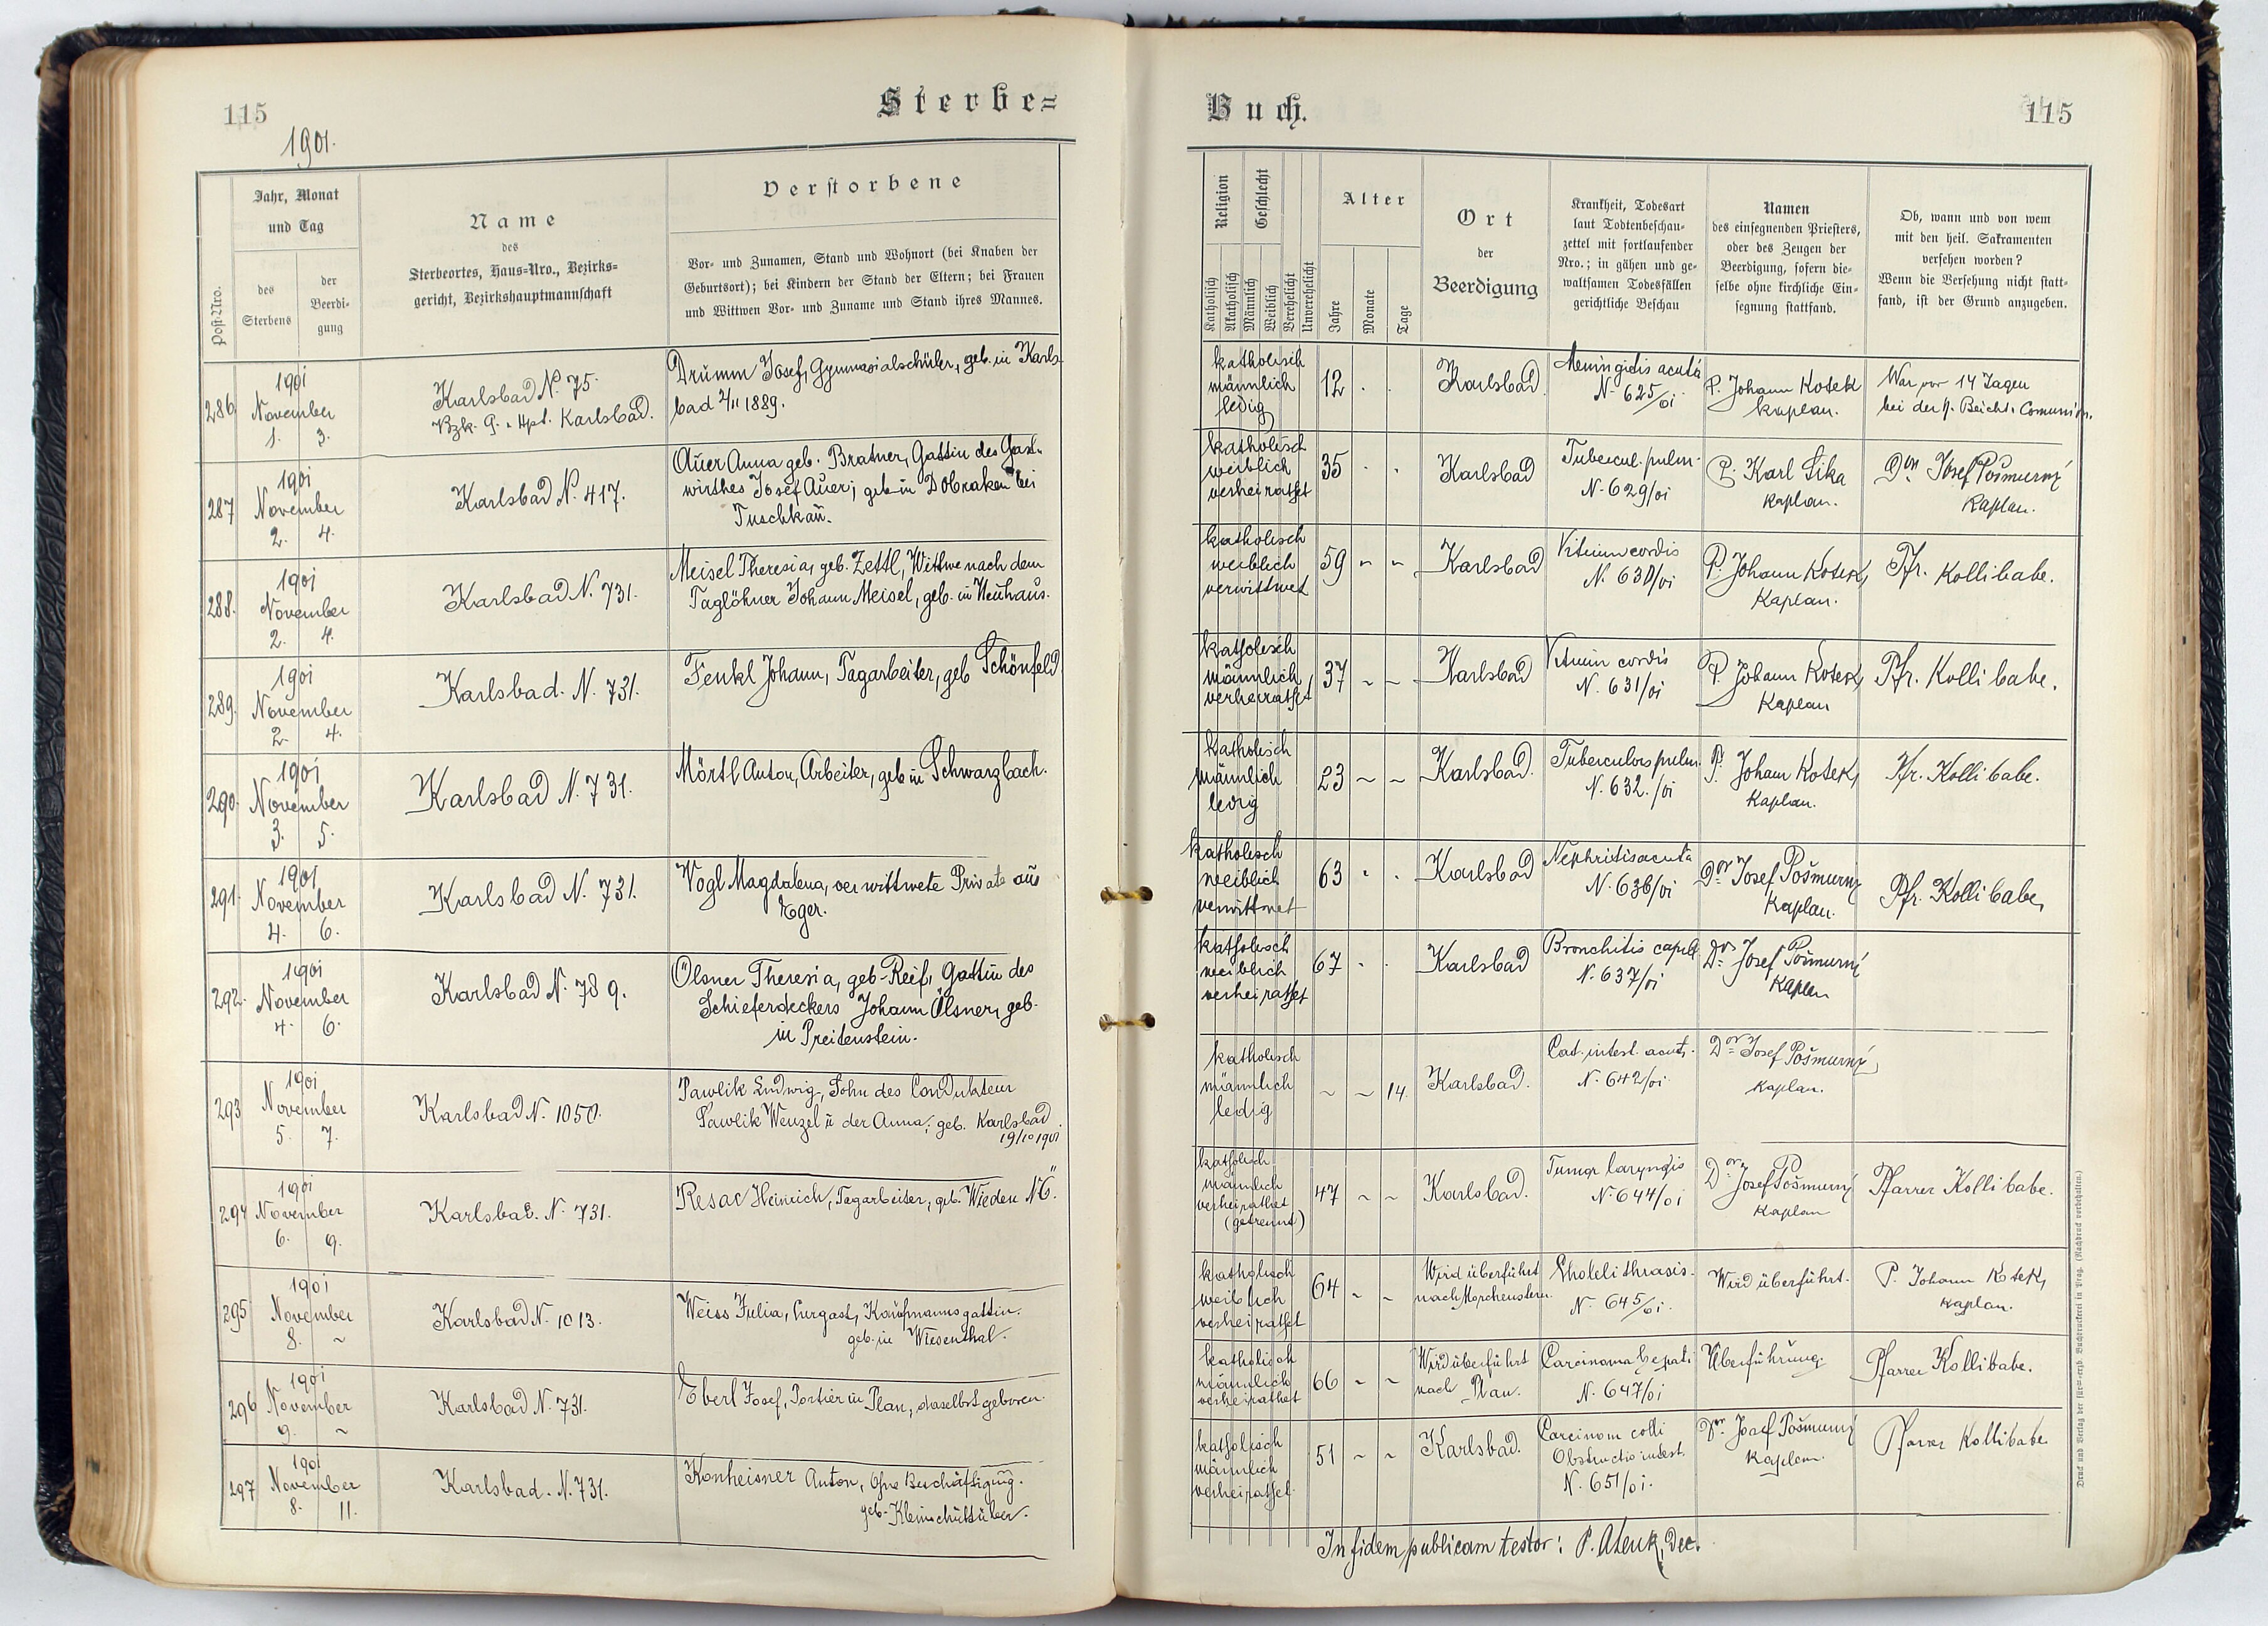 115
Sterbe=
1901.
Post-Nro.
Jahr, Monat
und Tag
des
Sterbens
der
Beerdi-
gung
Name
des
Sterbeortes, Haus-Nro., Bezirks-
gericht, Bezirkshauptmannschaft
Verstorbene
Vor- und Zunamen, Stand und Wohnort (bei Knaben der
Geburtsort); bei Kindern der Stand der Eltern; bei Frauen
und Wittwen Vor- und Zuname und Stand ihres Mannes.
286
1901
November
1. 3.
Karlsbad N. 75.
Bzk. G. u. Hpt. Karlsbad.
Drumm Josef, Gymnasialschüler, geb. in Karls-
bad 2/11 1889.
287
1901
November
2. 4.
Karlsbad N. 417.
Auer Anna geb. Bratner, Gattin des Gast-
wirthes Josef Auer; geb in Dobraken bei
Tuschkau.
288.
1901
November
2. 4.
Karlsbad N. 731.
Meisel Theresia, geb. Zettl, Wittwe nach dem
Taglöhner Johann Meisel, geb. in Neuhaus.
289.
1901
November
2. 4.
Karlsbad. N. 731.
Fenkl Johann, Tagarbeiter, geb Schönfeld
290.
1901
November
3. 5.
Karlsbad N. 731.
Mörtl Anton, Arbeiter, geb in Schwarzbach.
291.
1901
November
4. 6.
Karlsbad N. 731.
Vogl Magdalena, verwittwete Private aus
Eger.
292.
1901
November
4. 6.
Karlsbad N. 789.
Ölsner Theresia, geb. Reif, Gattin des
Schieferdeckers Johann Ölsner, geb.
in Preitenstein.
293
1901
November
5. 7.
Karlsbad N. 1050.
Pawlik Ludwig, Sohn des Condukteur
Pawlik Wenzel u der Anna; geb. Karlsbad
19/10 1901
294
1901
November
6. 9.
Karlsbad. N. 731.
Resac Heinrich, Tagarbeiter, geb. Wieden N.Ö.
295
1901
November
8. ~
Karlsbad N. 1013.
Weiss Julia, Curgast, Kaufmannsgattin.
geb. in Wiesenthal.
296
1901
November
9. ~
Karlsbad N. 731.
Eberl Josef, Portier in Plan, daselbst geboren.
297
1901
November
8. 11.
Karlsbad. N. 731.
Konheisner Anton, ohne Beschäftigung.
geb. Kleinschüttüber.
Buch.
115
Religion
Geschlecht
Katholisch
Akatholisch
Männlich
Weiblich
Verehelicht
Unverehelicht
Alter
Jahre
Monate
Tage
Ort
der
Beerdigung
Krankheit, Todesart
laut Todtenbeschau-
zettel mit fortlaufender
Nro.; in gähen und ge-
waltsamen Todesfällen
gerichtliche Beschau
Namen
des einsegnenden Priesters,
oder des Zeugen der
Beerdigung, sofern die-
selbe ohne kirchliche Ein-
segnung stattfand.
Ob, wann und von wem
mit den heil. Sakramenten
versehen worden?
Wenn die Versehung nicht statt-
fand, ist der Grund anzugeben.
katholisch
männlich
ledig
12 . .
Karlsbad.
Meningidis acuta
N. 625/01
P. Johann Kotek
Kaplan.
War vor 14 Tagen
bei der h. Beicht u. Comunion.
katholisch
weiblich
verheirathet
35 . .
Karlsbad
Tubercul. pulm.
N. 629/01
P. Karl Sika
Kaplan.
Dor Josef Pošmurný
Kaplan.
katholisch
weiblich
verwittwet
59 ~ ~
Karlsbad
Vitium cordis
N. 630/01
P. Johann Kotek,
Kaplan.
Pfr. Kollibabe.
katholisch
männlich
verheirathet
37 ~ ~
Karlsbad
Vitium cordis
N. 631/01
P. Johann Kotek,
Kaplan
Pfr. Kollibabe.
katholisch
männlich
ledig
23 ~ ~
Karlsbad.
Tuberculos pulm.
N. 632./01
P. Johann Kotek,
Kaplan.
Pfr. Kollibabe.
katholisch
weiblich
verwittwet
63 . .
Karlsbad
Nephritis acuta
N. 636/01
Dor Josef Pošmurný
Kaplan.
Pfr. Kollibabe,
katholisch
weiblich
verheirathet
67 . .
Karlsbad
Bronchitis capill
N. 637/01
Dor Josef Pošmurný
Kaplan
katholisch
männlich
ledig
~ ~ 14.
Karlsbad.
Cat. intest. acut.
N. 642/01
Dor Josef Pošmurný
Kaplan.
katholisch
männlich
verheirathet
(getrennt)
47 ~ ~
Karlsbad.
Tumor laryngis
N. 644/01
Dor Josef Pošmurný
Kaplan
Pfarrer Kollibabe.
katholisch
weiblich
verheirathet
64 ~ ~
Wird überführt
nach Morchenstern.
Cholelithiasis.
N. 645/01.
Wird überführt.
P. Johann Kotek,
Kaplan.
katholisch
männlich
verheirathet
66 ~ ~
Wird überführt
nach Plan.
Carcinoma hepati
N. 647/01
Überführung.
Pfarrer Kollibabe.
katholisch
männlich
verheirathet
51 ~ ~
Karlsbad.
Carcinom colli
Obstructio intest.
N. 651/01.
Dor. Josef Pošmurný
Kaplan.
Pfarrer Kollibabe.
In fidem publicam testor:
Druck und Verlag der fürst-erzb. Buchdruckerei in Prag. (Nachdruck vorbehalten.)